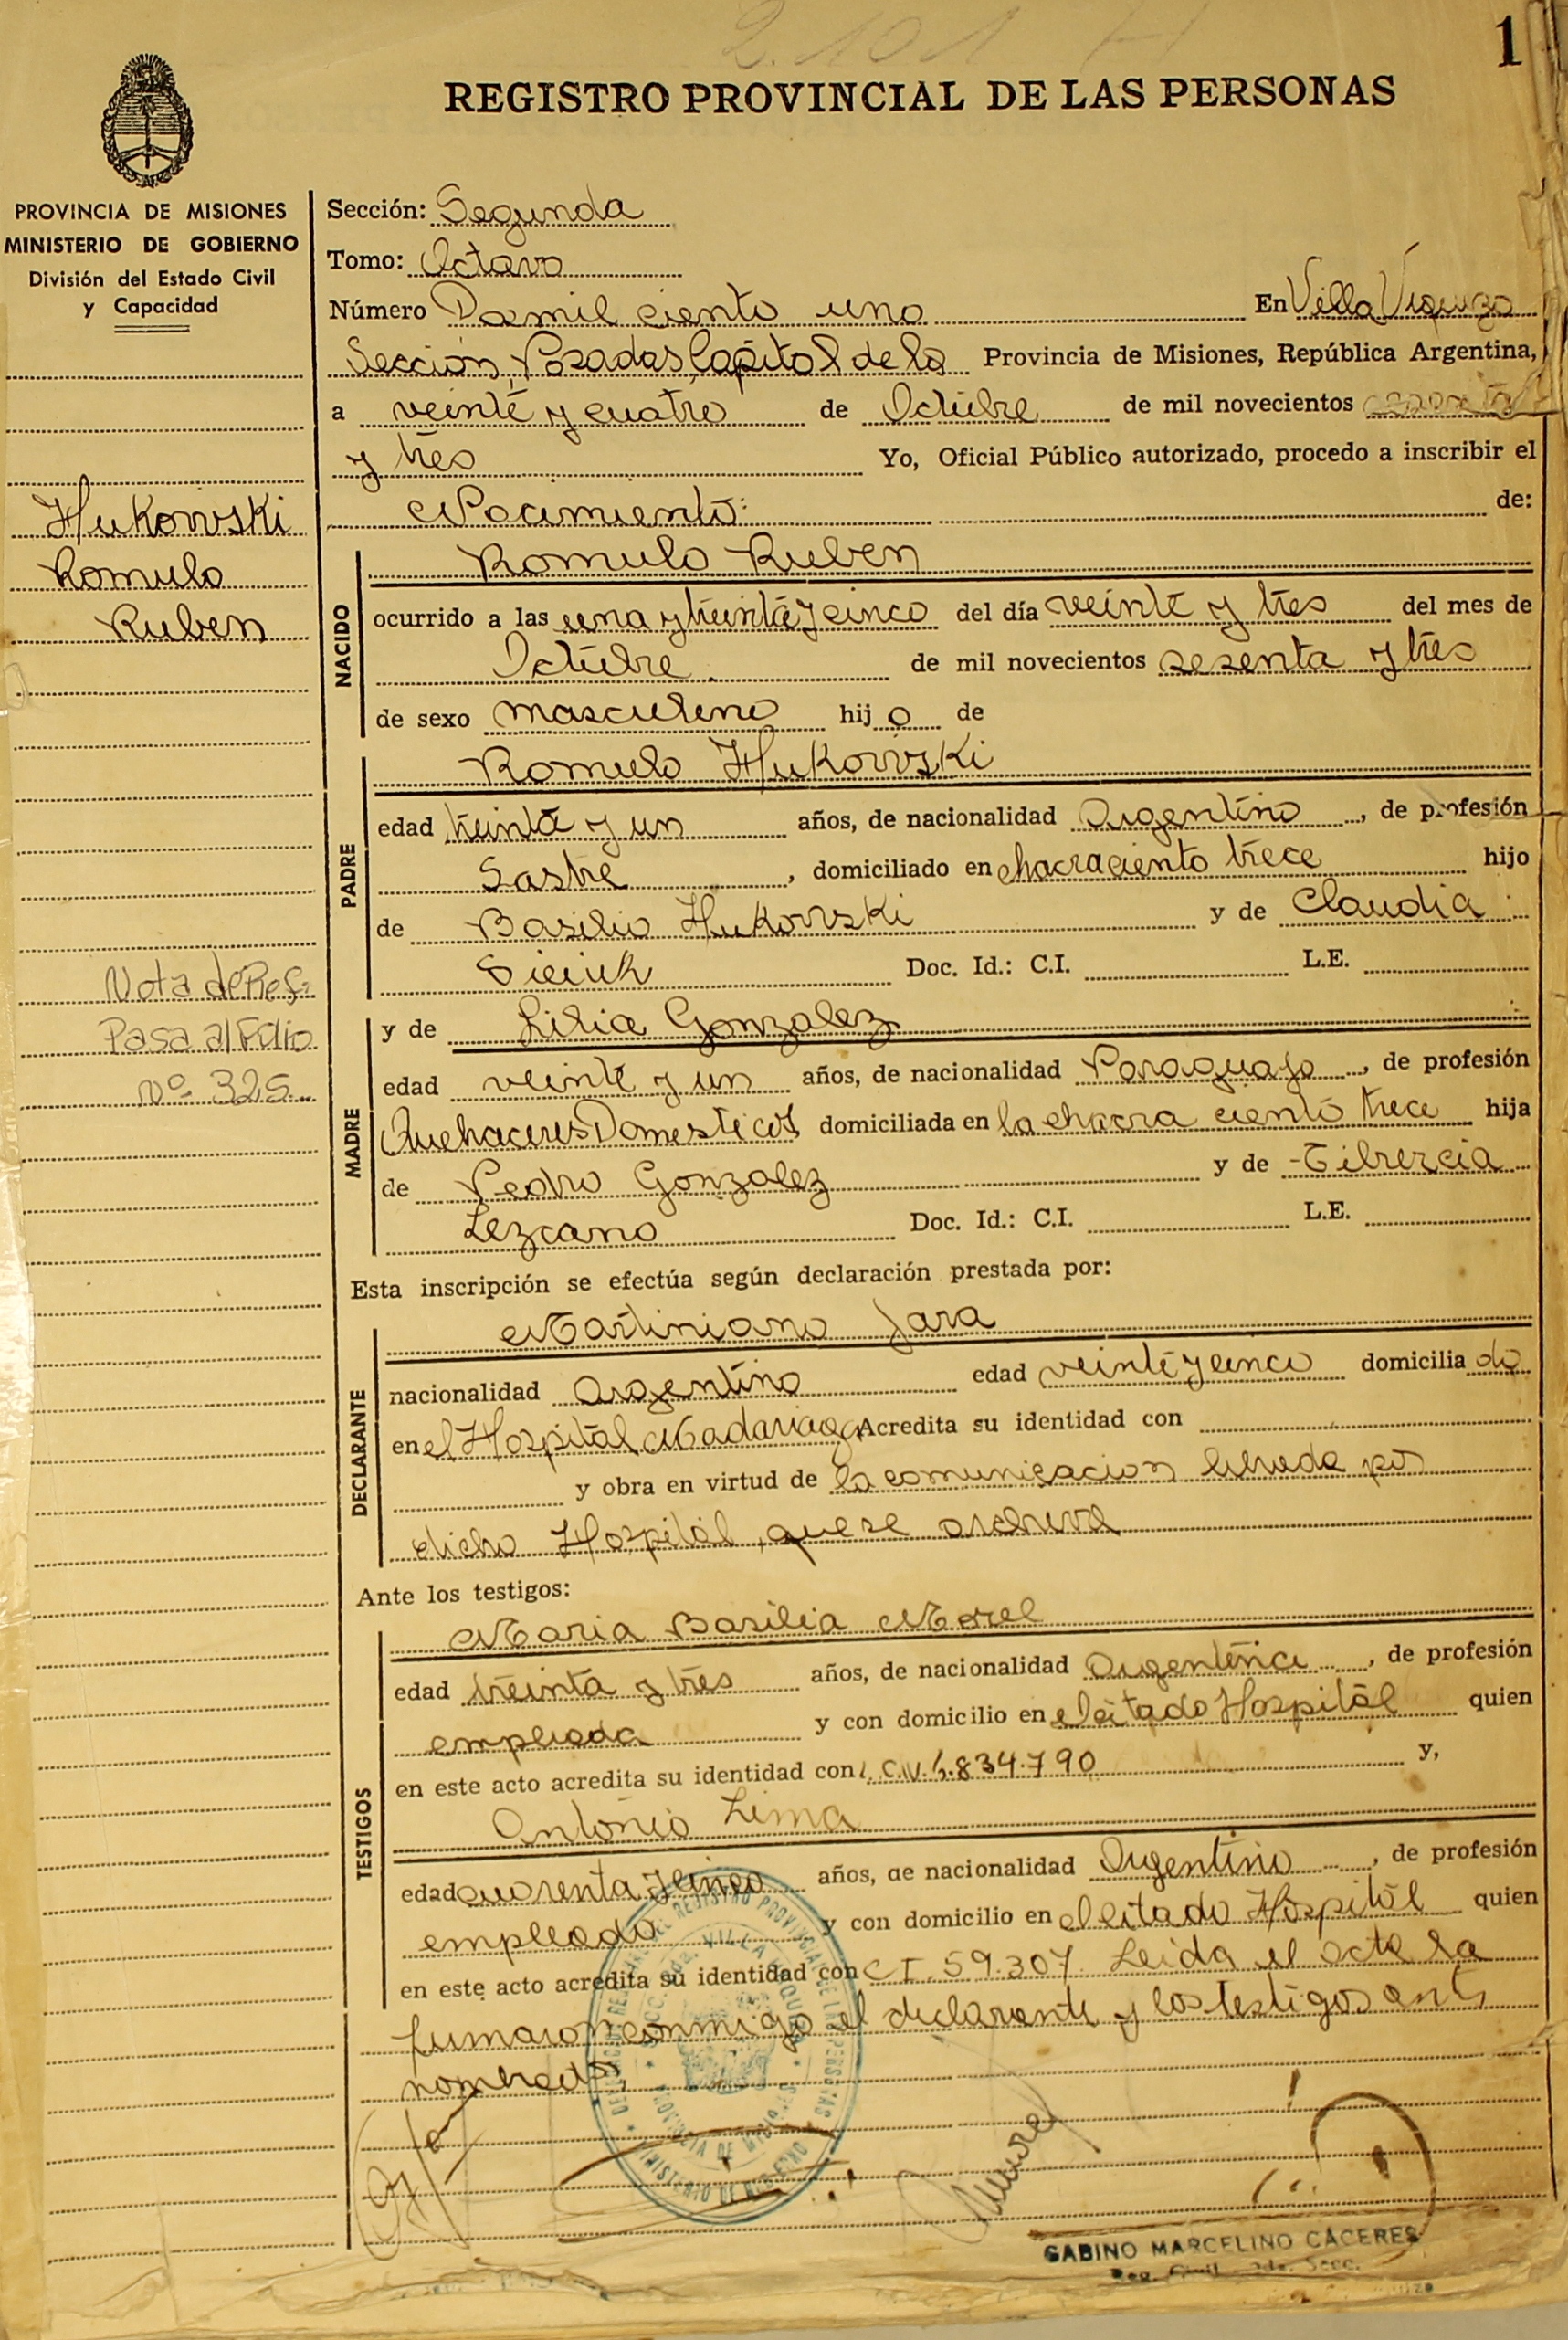 2.101
1
REGISTRO PROVINCIAL DE LAS PERSONAS
PROVINCIA DE MISIONES
MINISTERIO DE GOBIERNO
División del Estado Civil
y Capacidad
Hukowski
Romulo
Ruben
Nota de Ref.
Pasa al Folio
Nº 325
Sección: Segunda
Tomo: Octavo
Número Dosmil ciento uno En Villa Urquiza
Sección, Posadas, Capital de la Provincia de Misiones, República Argentina,
a veinte y cuatro de Octubre de mil novecientos sesenta
y tres Yo, Oficial Público autorizado, procedo a inscribir el
Nacimiento: de:
NACIDO
Romulo Ruben
ocurrido a las una y treinta y cinco del día veinte y tres del mes de
Octubre de mil novecientos sesenta y tres
de sexo masculino hijo de
PADRE
Romulo Hukowski
edad treinta y un años, de nacionalidad Argentino, de profesión
Sastre, domiciliado en chacra ciento trece hijo
de Basilio Hukowski y de Claudia
Doc. Id.: C.I. L.E.
MADRE
y de Lilia Gonzalez
edad veinte y un años, de nacionalidad Paraguaya, de profesión
Quehaceres Domesticos domiciliada en la chacra ciento trece hija
de Pedro Gonzalez y de Tibrercia
Lezcano Doc. Id.: C.I. L.E.
Esta inscripción se efectúa según declaración prestada por:
DECLARANTE
Martiniano Jara
nacionalidad Argentino edad veinte y cinco domiciliado
en el Hospital Madariaga Acredita su identidad con
y obra en virtud de la comunicacion librada por
dicho Hospital, que se archiva
Ante los testigos:
TESTIGOS
Maria Basilia Morel
edad treinta y tres años, de nacionalidad Argentina, de profesión
empleada y con domicilio en el citado Hospital quien
en este acto acredita su identidad con L.C.N. 6.834.790 y,
Antonio Lima
edad cuarenta y cinco años, de nacionalidad Argentino, de profesión
empleado y con domicilio en el citado Hospital quien
en este acto acredita su identidad con C.I. 59.307. Leida el acta la
firmaron conmigo el declarante y los testigos ante
nombrados.
GABINO MARCELINO CACERES